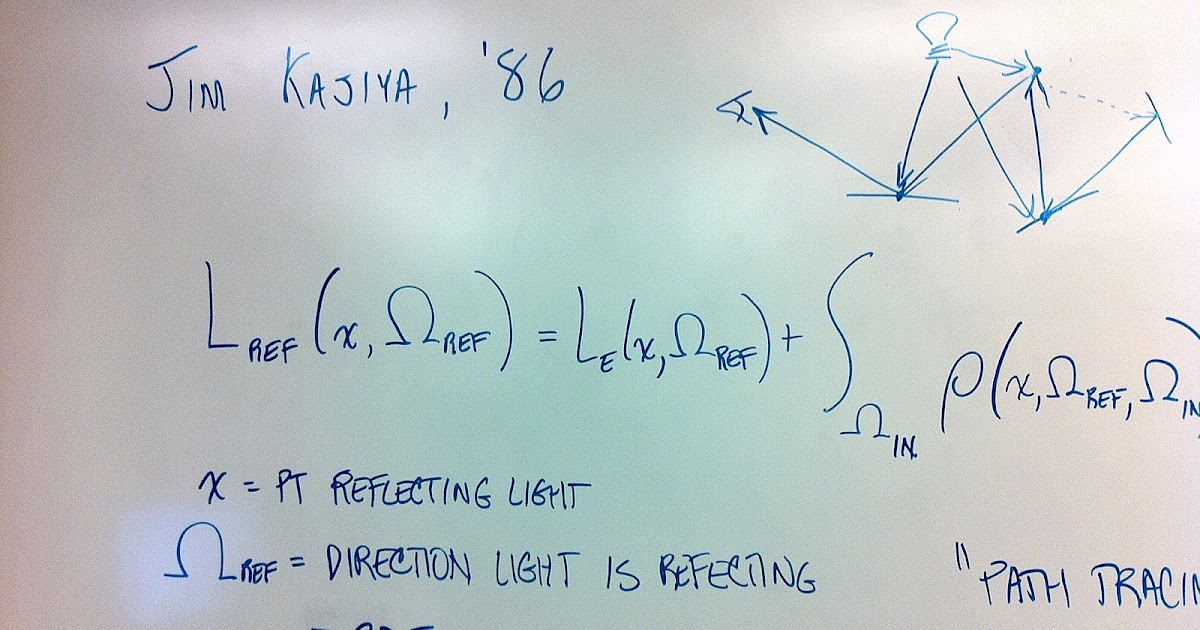 JIM KAJIYA, '86
L_REF (x, Ω_REF) = L_E (x, Ω_REF) + ∫_Ω_IN ρ(x, Ω_REF, Ω_IN
x = PT REFLECTING LIGHT
Ω_REF = DIRECTION LIGHT IS REFECTING
"PATH TRACIN